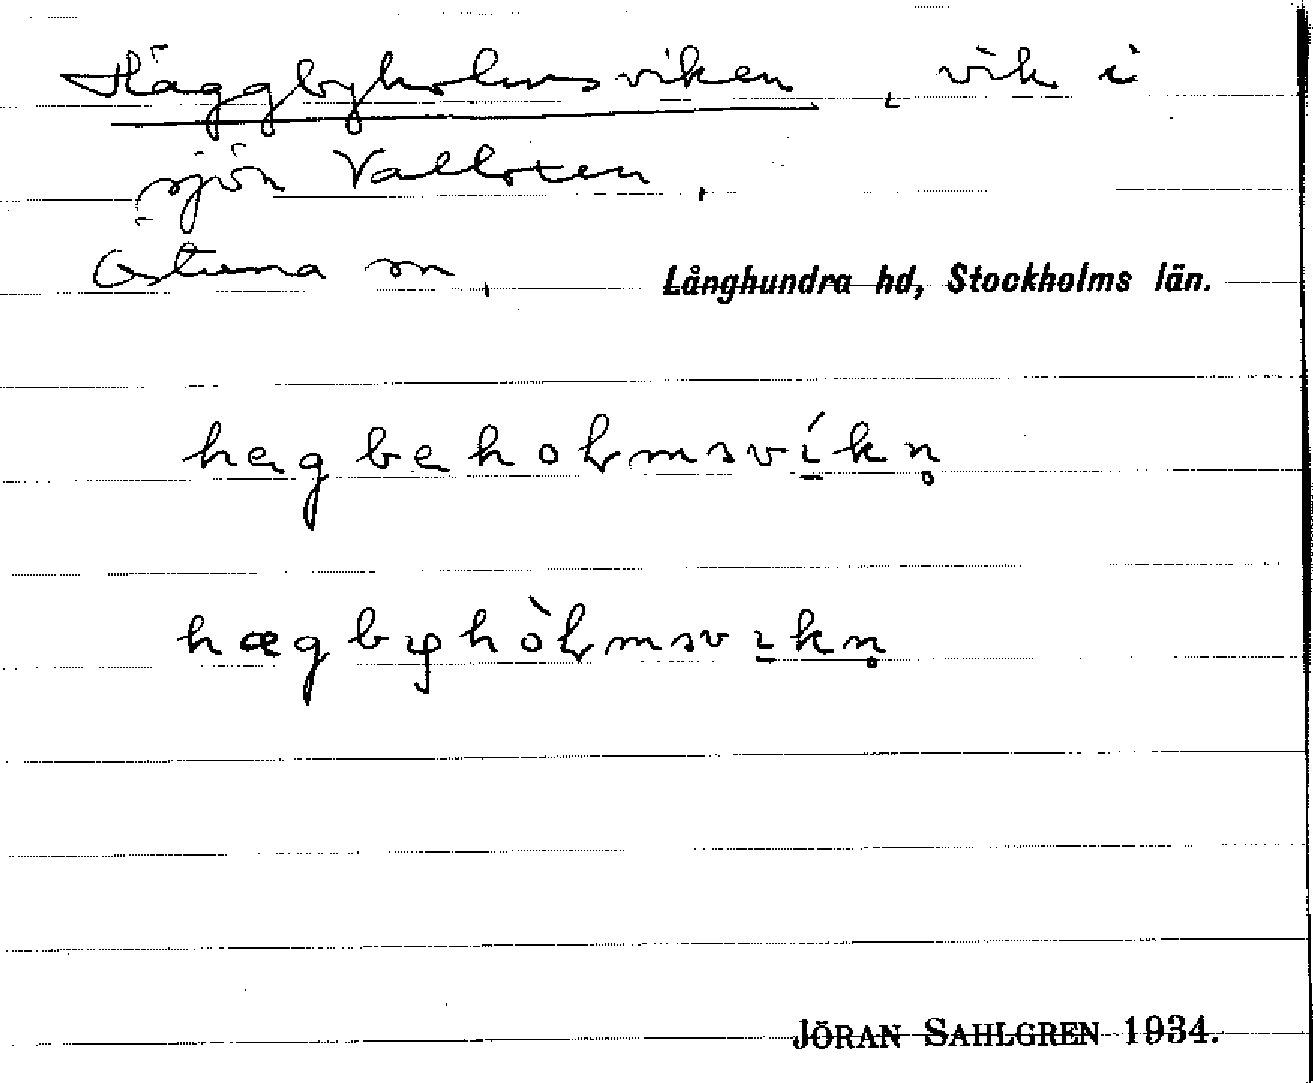 Häggbyholmsviken, vik i
sjön Valloxen,
Östuna sn, Långhundra hd, Stockholms län.
hagbaholmsvíkn̥
hægbyhòlmsvikn̥
JÖRAN SAHLGREN 1934.